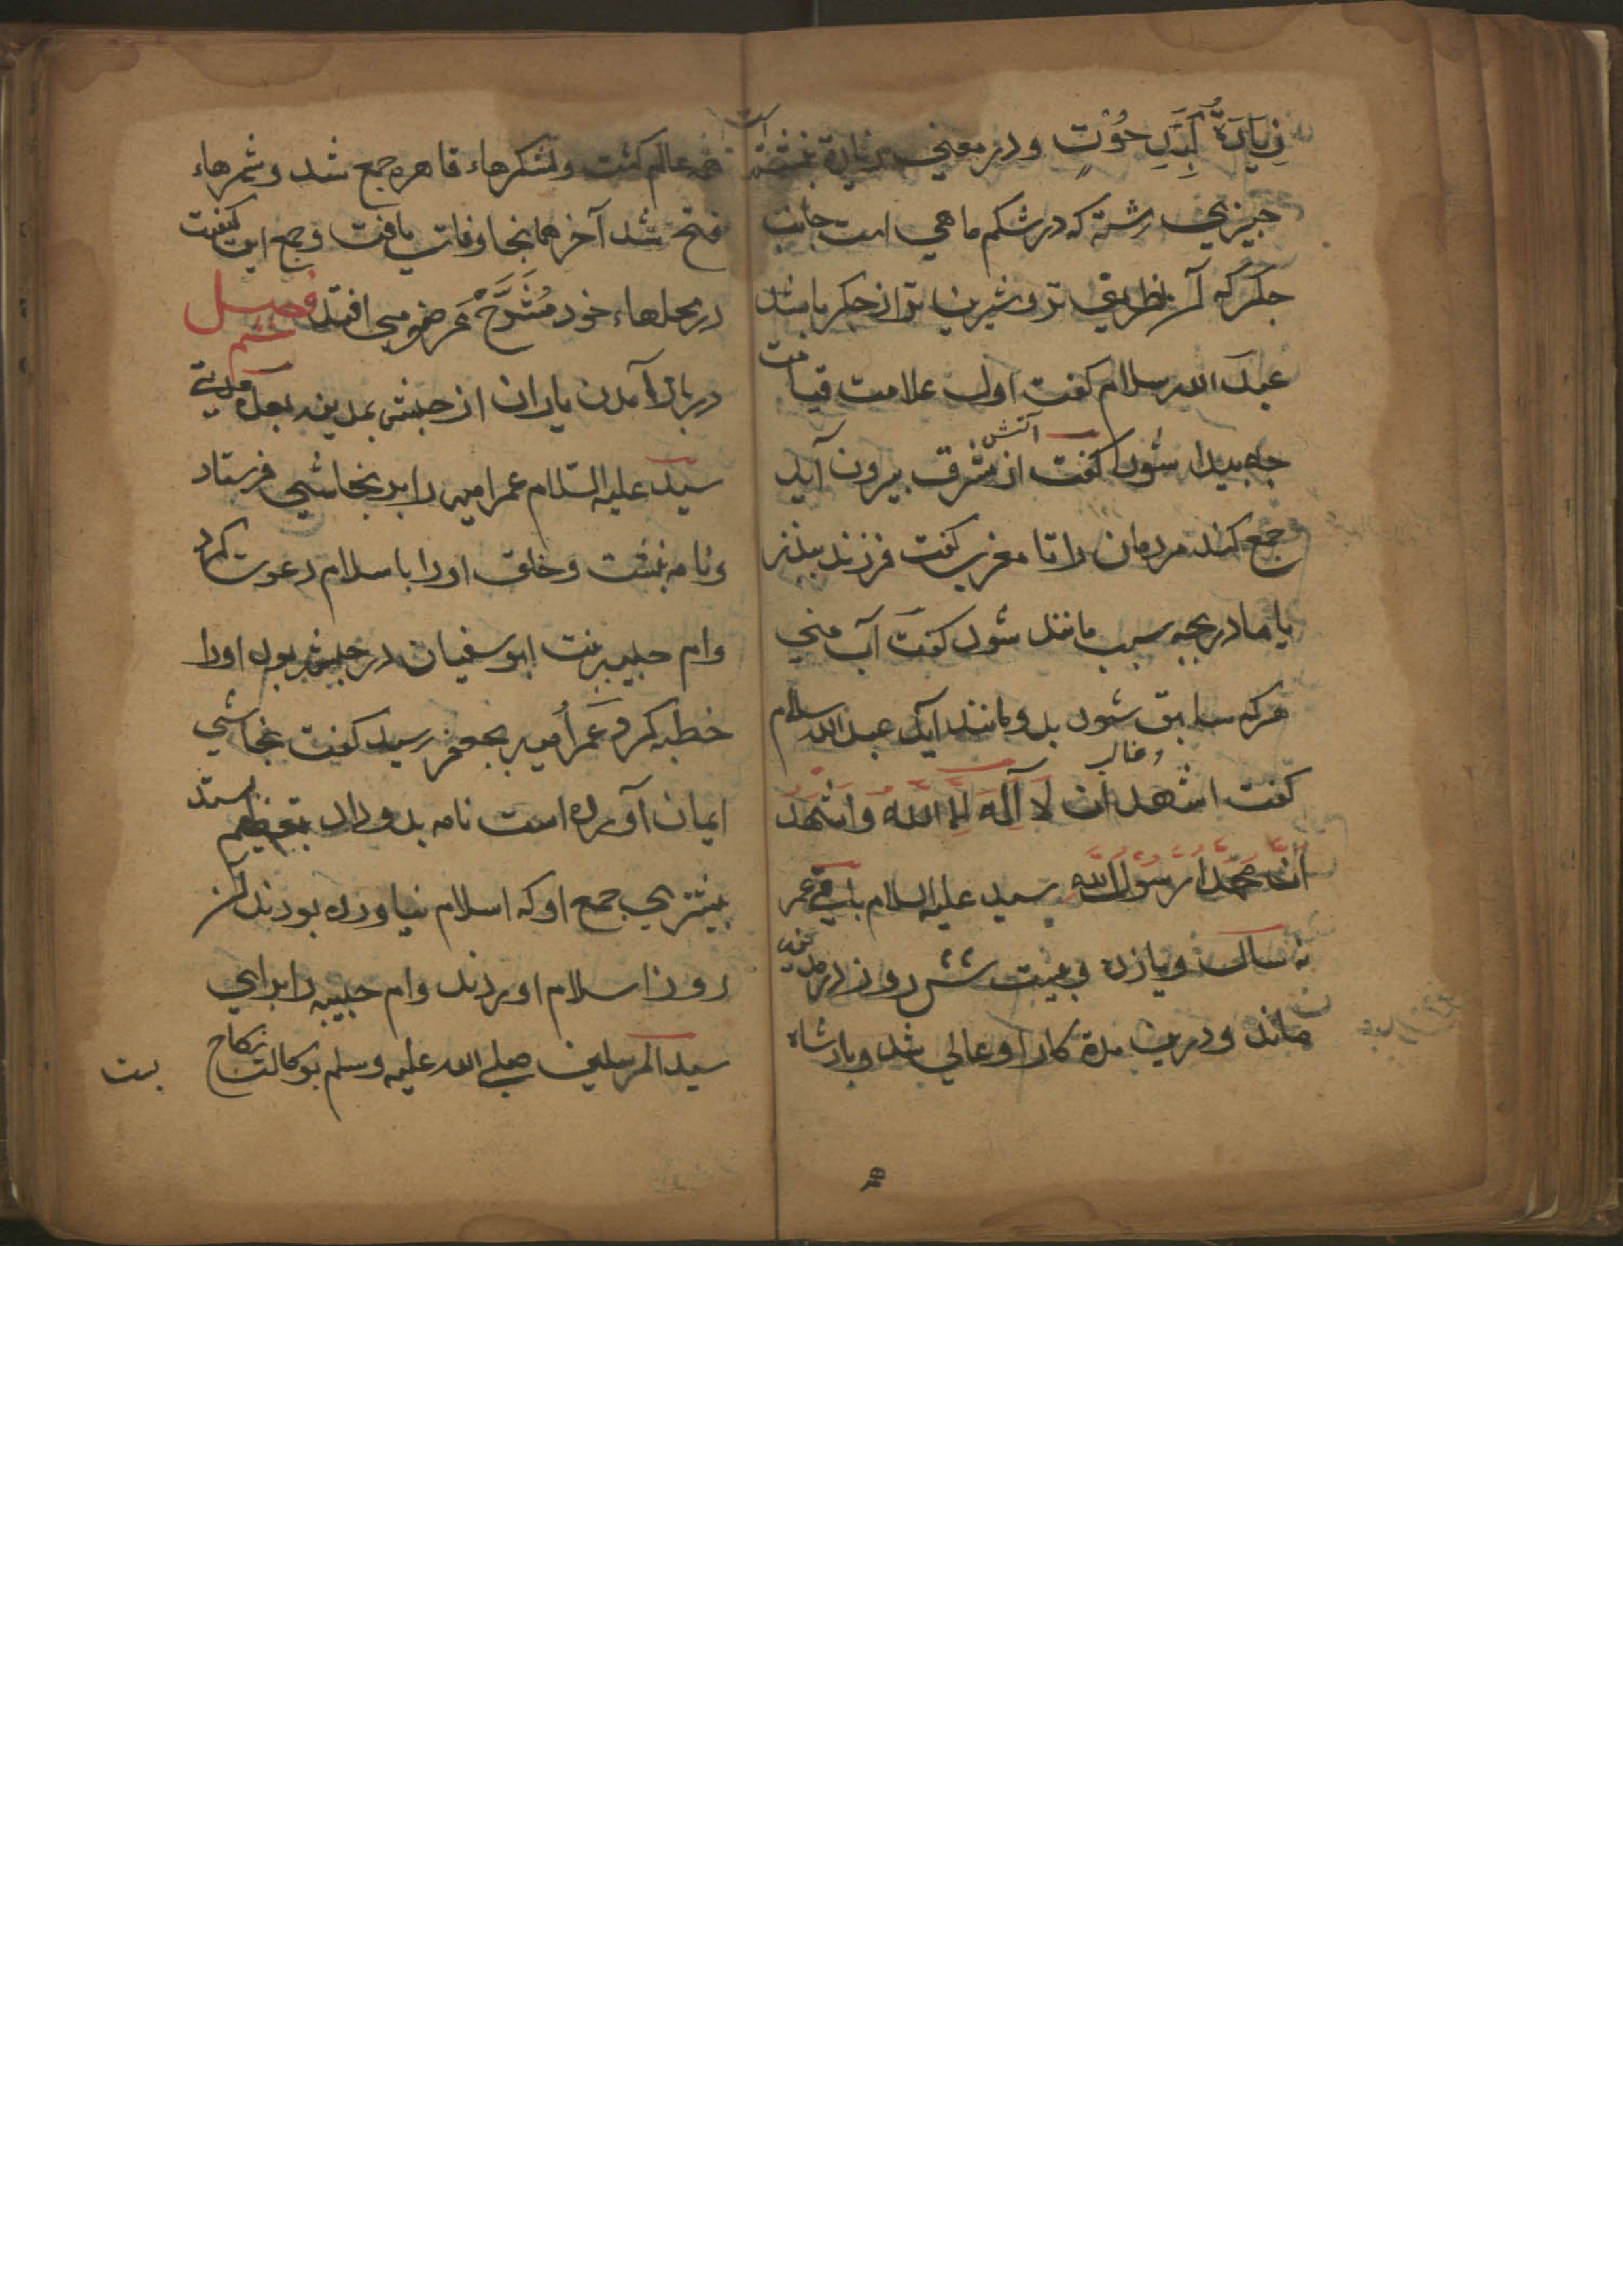 زِيَادَةُ كَبَدِ حُوْتٍ ودر معني زيادة نبشته است
چيزي رشته كه در شكم ماهي است جانب
جكر كه آن بطريقي تر وشيرين تر از جكر باشد
عبد الله سلام كفت اول علامت قيامت
چه پيدا شود كفت آتش از مشرق بيرون آيد
جمع كند مردمان را تا مغرب كفت فرزند بپدر
يا مادر بچه سبب مانند شود كفت آب مني
هركه سابق شود وغالب بدو مانند آيد عبد الله سلام
كفت اشهد ان لا آله الا الله واشهد
ان محمدا رسول الله سيد عليه السلام باقي عمر
نه سال ويازده بيست شش روز در مدينه
ماند ودرين مدة كار او عالي شد وبادشاه
همه عالم كشت ولشكرهاء قاهره جمع شد وشهرهاء
فتح شد آخر همانجا وفات يافت وجمع اين كيفيت
در محلهاء خود مُشَرَّحْ معروض مي افتد فصل ششم
در باز آمدن ياران از حبشه بمدينه بعد مدتي
سيد عليه السلام عمر اميه را بر نجاشي فرستاد
ونامه نبشت وخلق او را باسلام دعوت كرد
وام حبيبه بنت ابوسفيان در حبشه بود او را
خطبه كرد وعمر اميه بجعفر رسيد كفت نجاشي
ايمان آورده است نامه بدو داد بتعظيم بستد
بيشتري جمع او كه اسلام نياورده بودند آن
روز اسلام اوردند وام حبيبه را براي
سيد المرسلين صلي الله عليه وسلم بوكالت نكاح
بست